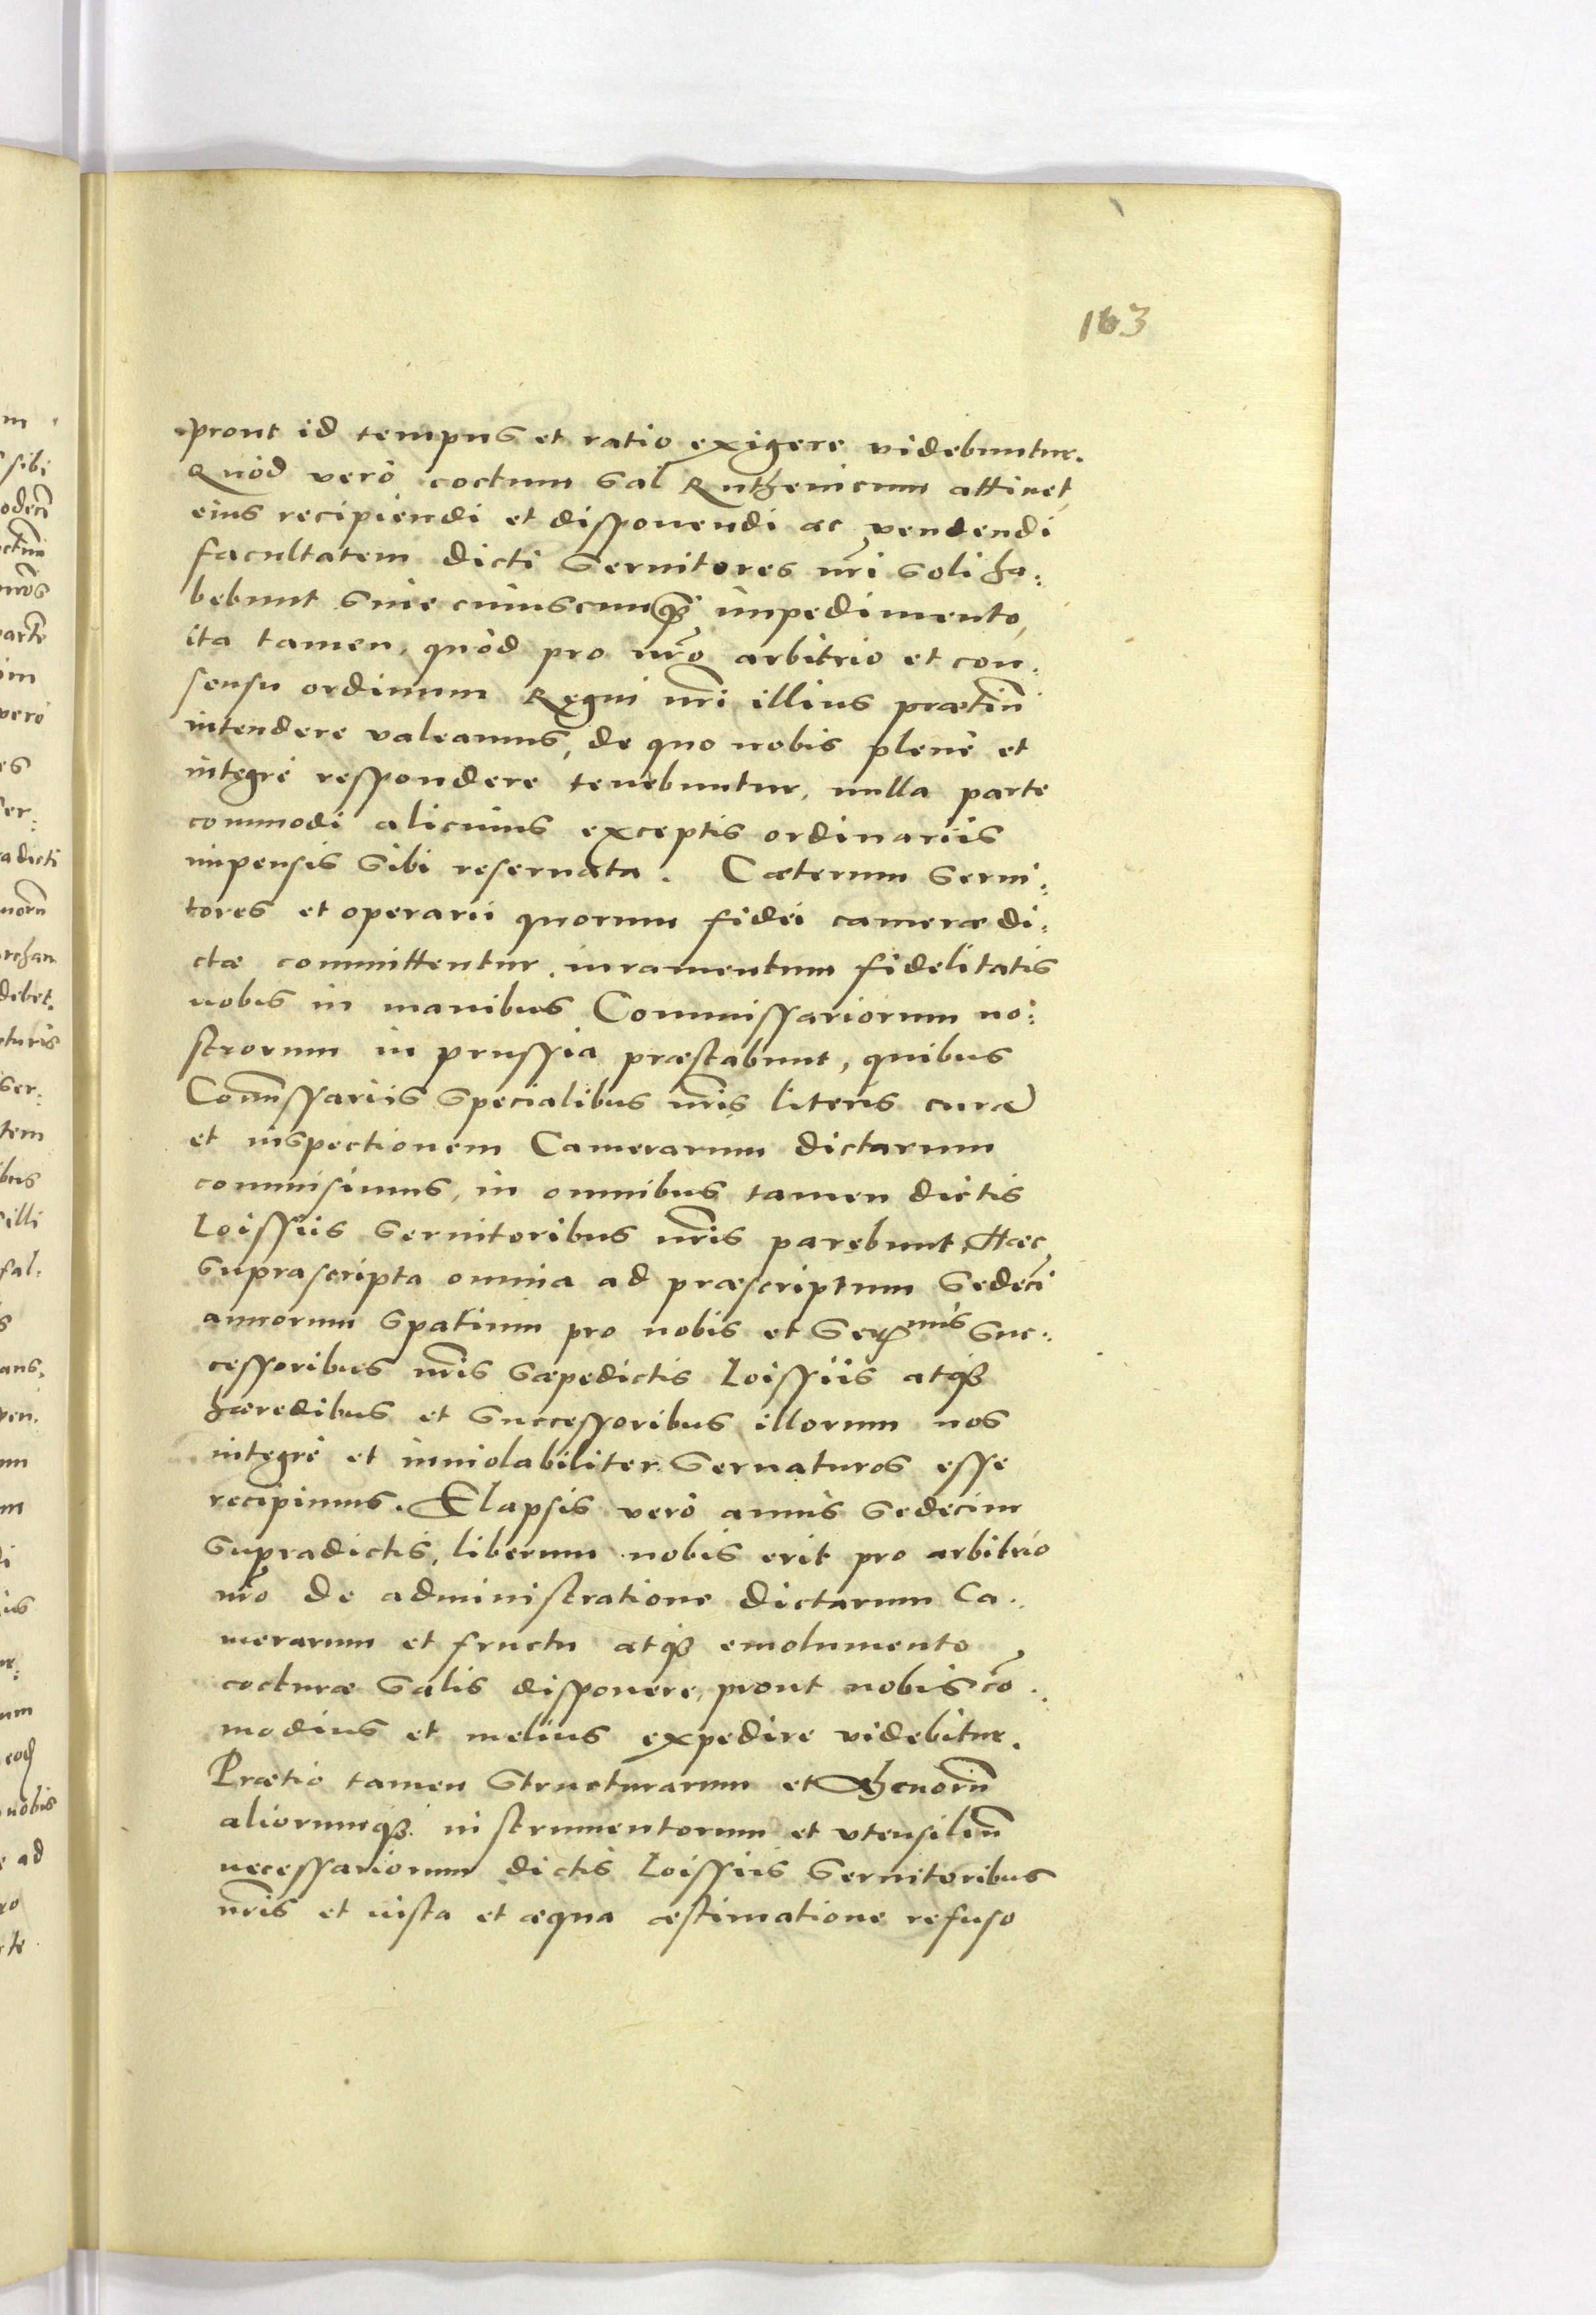 163
prout id tempus et ratio exigere videbuntur.
Quod verò coctum Sal Ruthenicum attinet,
eius recipiendi et disponendi ac vendendi
facultatem dicti Seruitores nri soli ha:
bebunt sine cuiuscunqȝ impedimento,
ita tamen, quòd pro nro arbitrio et con:
sensu ordinum Regni nri illius praetiũ
intendere valeamus, de quo nobis plenè et
integrè respondere tenebuntur, nulla parte
commodi alicuius exceptis ordinariis
impensis sibi reseruata. Caeterum serui:
tores et operarii quorum fidei camerae di:
ctae committentur, iuramentum fidelitatis
nobis in manibus Commissariorum no:
strorum in prussia praestabunt, quibus
Com̃issariis specialibus nris literis curã
et inspectionem Camerarum dictarum
commisimus, in omnibus tamen dictis
Loissiis seruitoribus nris parebunt. Haec
suprascripta omnia ad praescriptum sedecĩ
annorum spatium pro nobis et Sermis suc:
cessoribus nris saepedictis Loissiis atqȝ
haeredibus et successoribus illorum nos
integrè et inuiolabiliter seruaturos esse
recipimus. Elapsis verò annis sedecim
supradictis, liberum nobis erit pro arbitrio
nro de administratione dictarum Ca:
merarum et fructu atqȝ emolumento
cocturae salis disponere, prout nobis cõ:
modius et melius expedire videbitur.
Praetio tamen structurarum et Ahenorũ
aliorumqȝ instrumentorum et vtensiliũ
necessariorum dictis Loissiis seruitoribus
nris et iusta et aequa aestimatione refuso